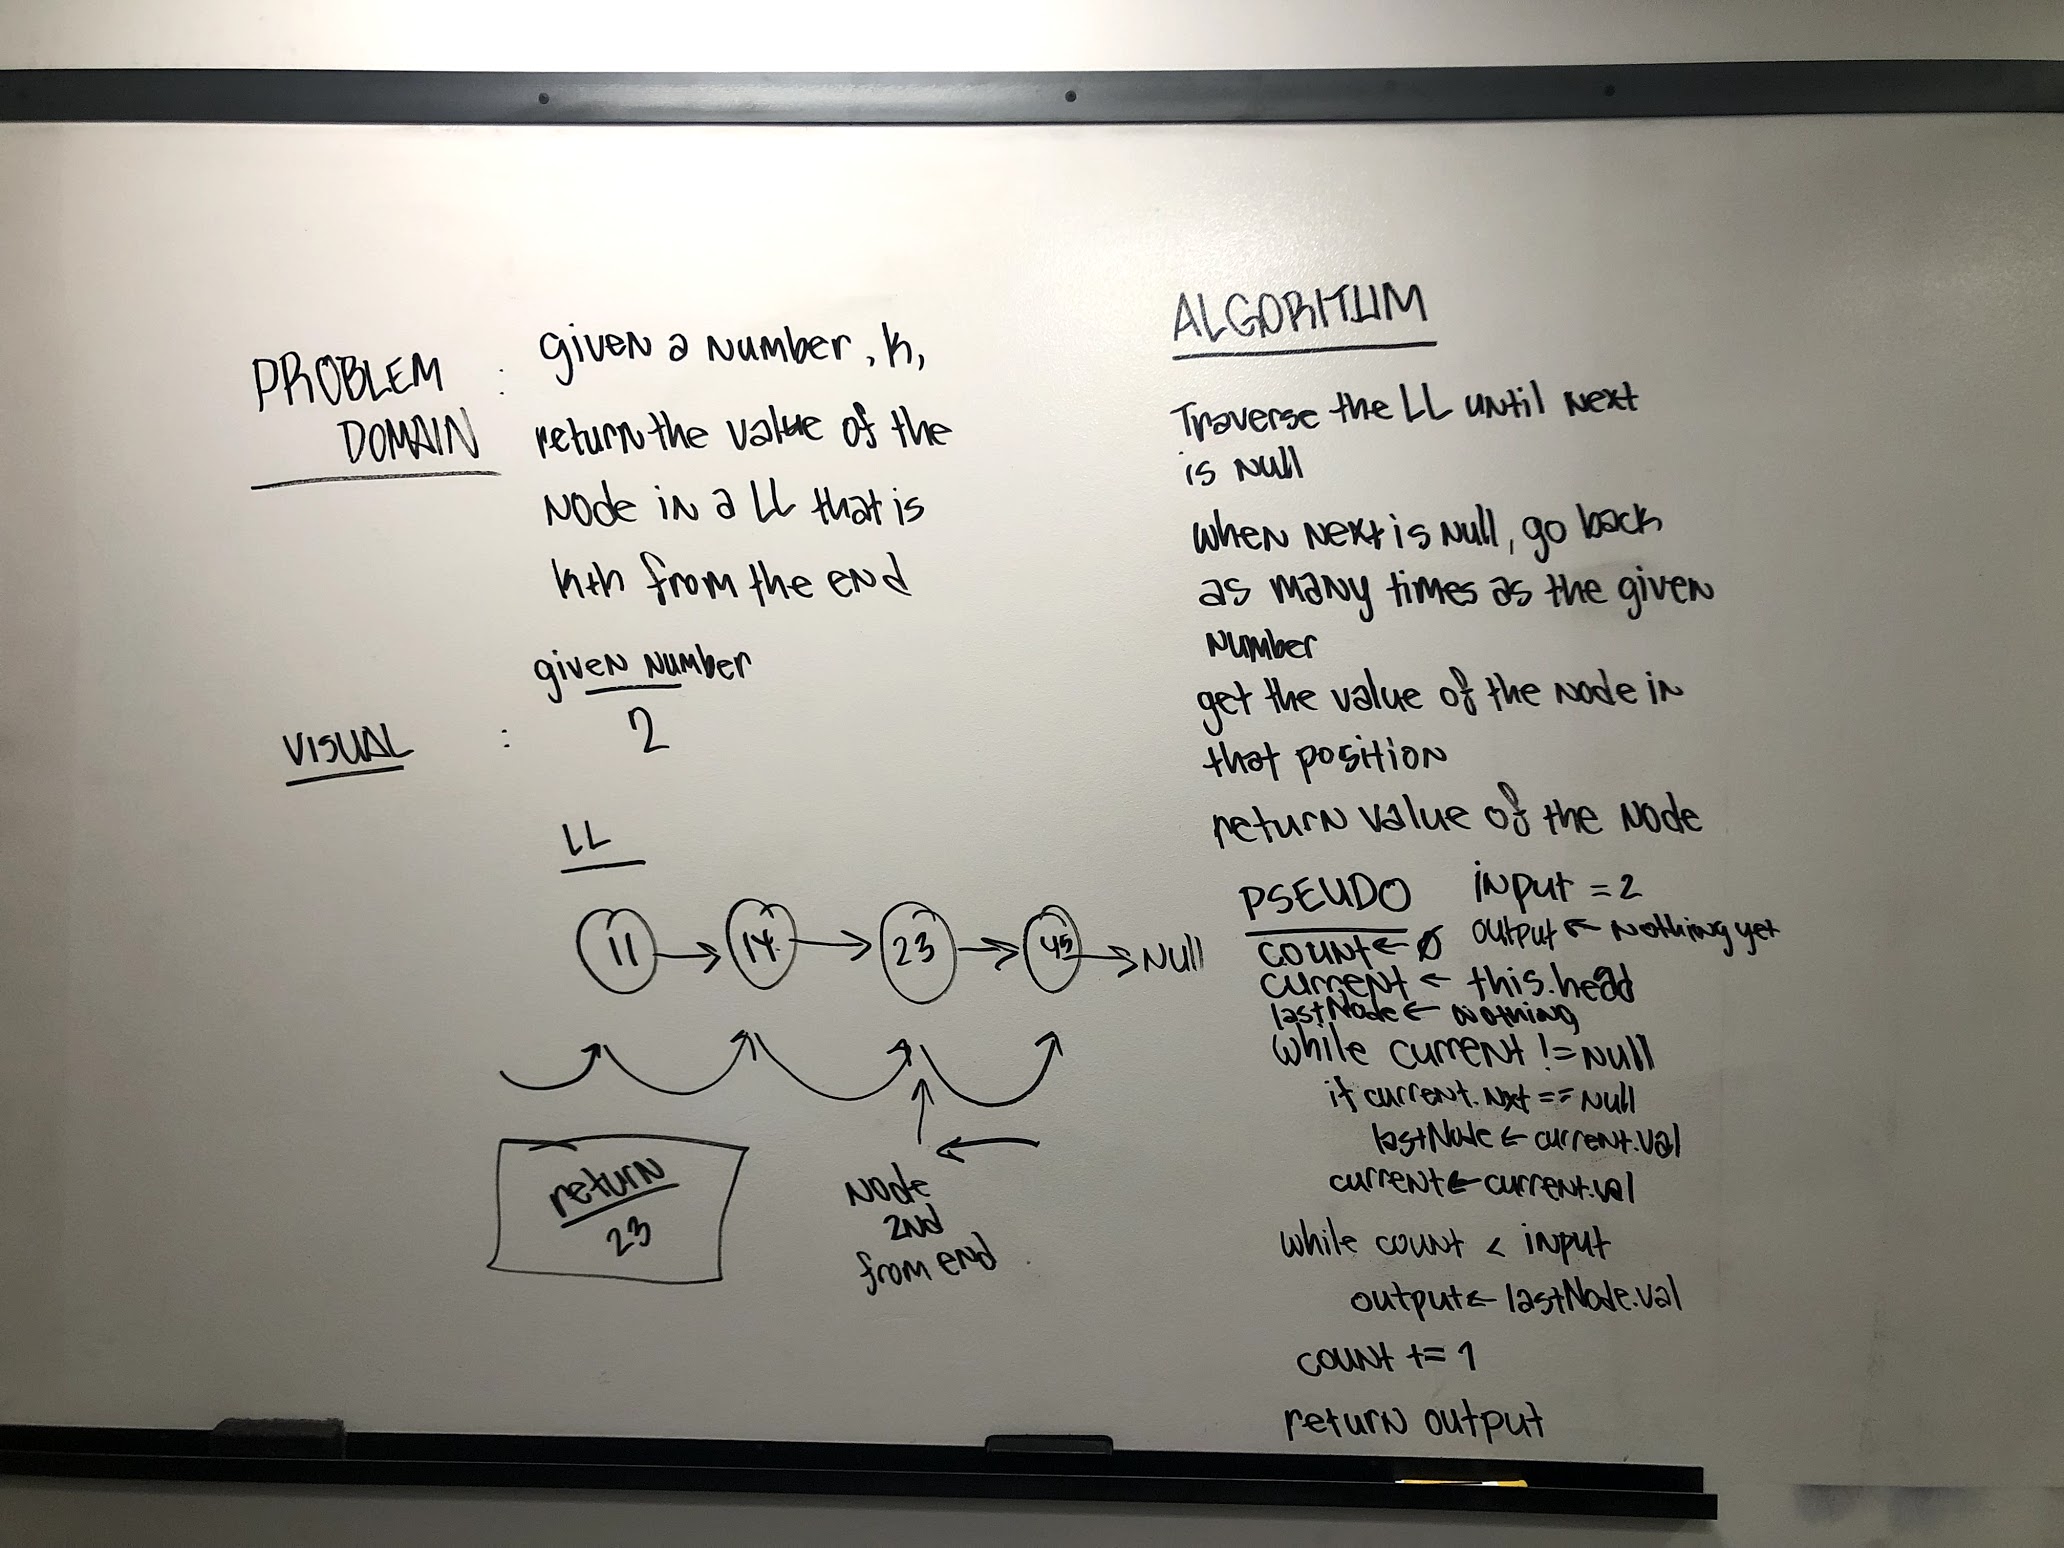 PROBLEM DOMAIN : given a number, k,
return the value of the
node in a LL that is
kth from the end
VISUAL :
given number
2
LL
11 → 14 → 23 → 45 → Null
return
23
Node
2nd
from end
ALGORITHM
Traverse the LL until next
is null
when next is null, go back
as many times as the given
number
get the value of the node in
that position
return value of the node
PSEUDO input = 2
output ← nothing yet
count ← 0
current ← this.head
lastNode ← nothing
while current != null
if current.nxt == null
lastNode ← current.val
current ← current.val
while count < input
output ← lastNode.val
count += 1
return output